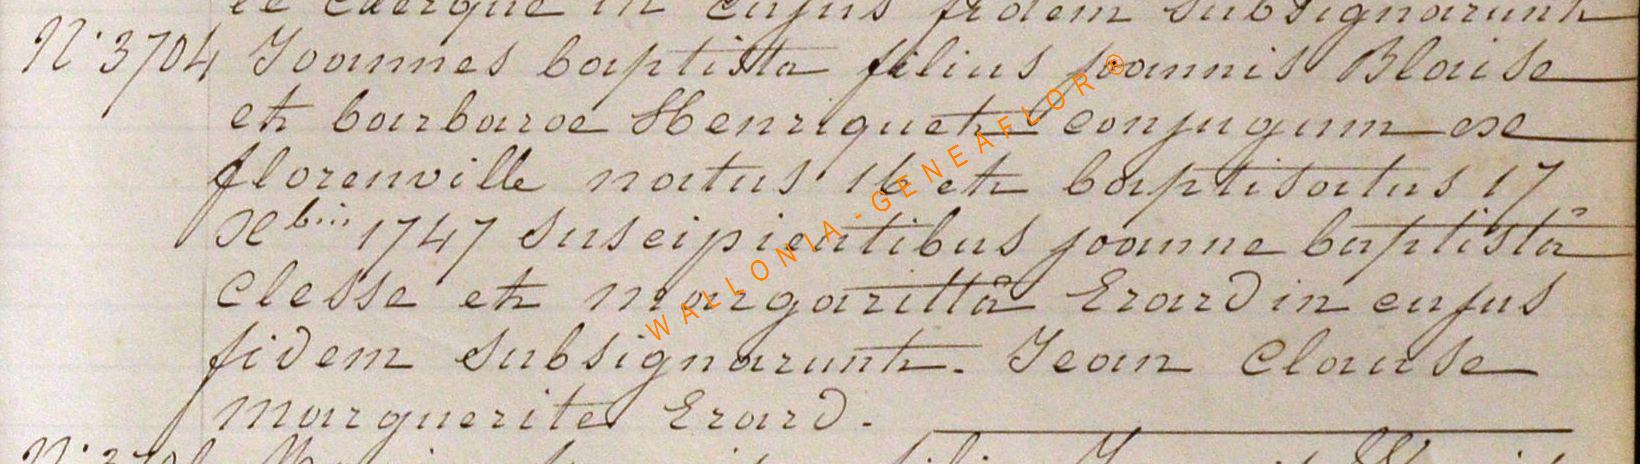 le Clerque in cujus fidem subsignarunt
N° 3704 Joannes baptista filius joannis Blaise
et barbarae Henriquet conjugum ex
florenville natus 16 et baptisatus 17
Xbris 1747 suscipientibus joanne baptistâ
Clesse et margarittâ Erard in cujus
fidem subsignarunt. Jean Clause
marguerite Erard.
WALLONIA-GENEAFLOR®